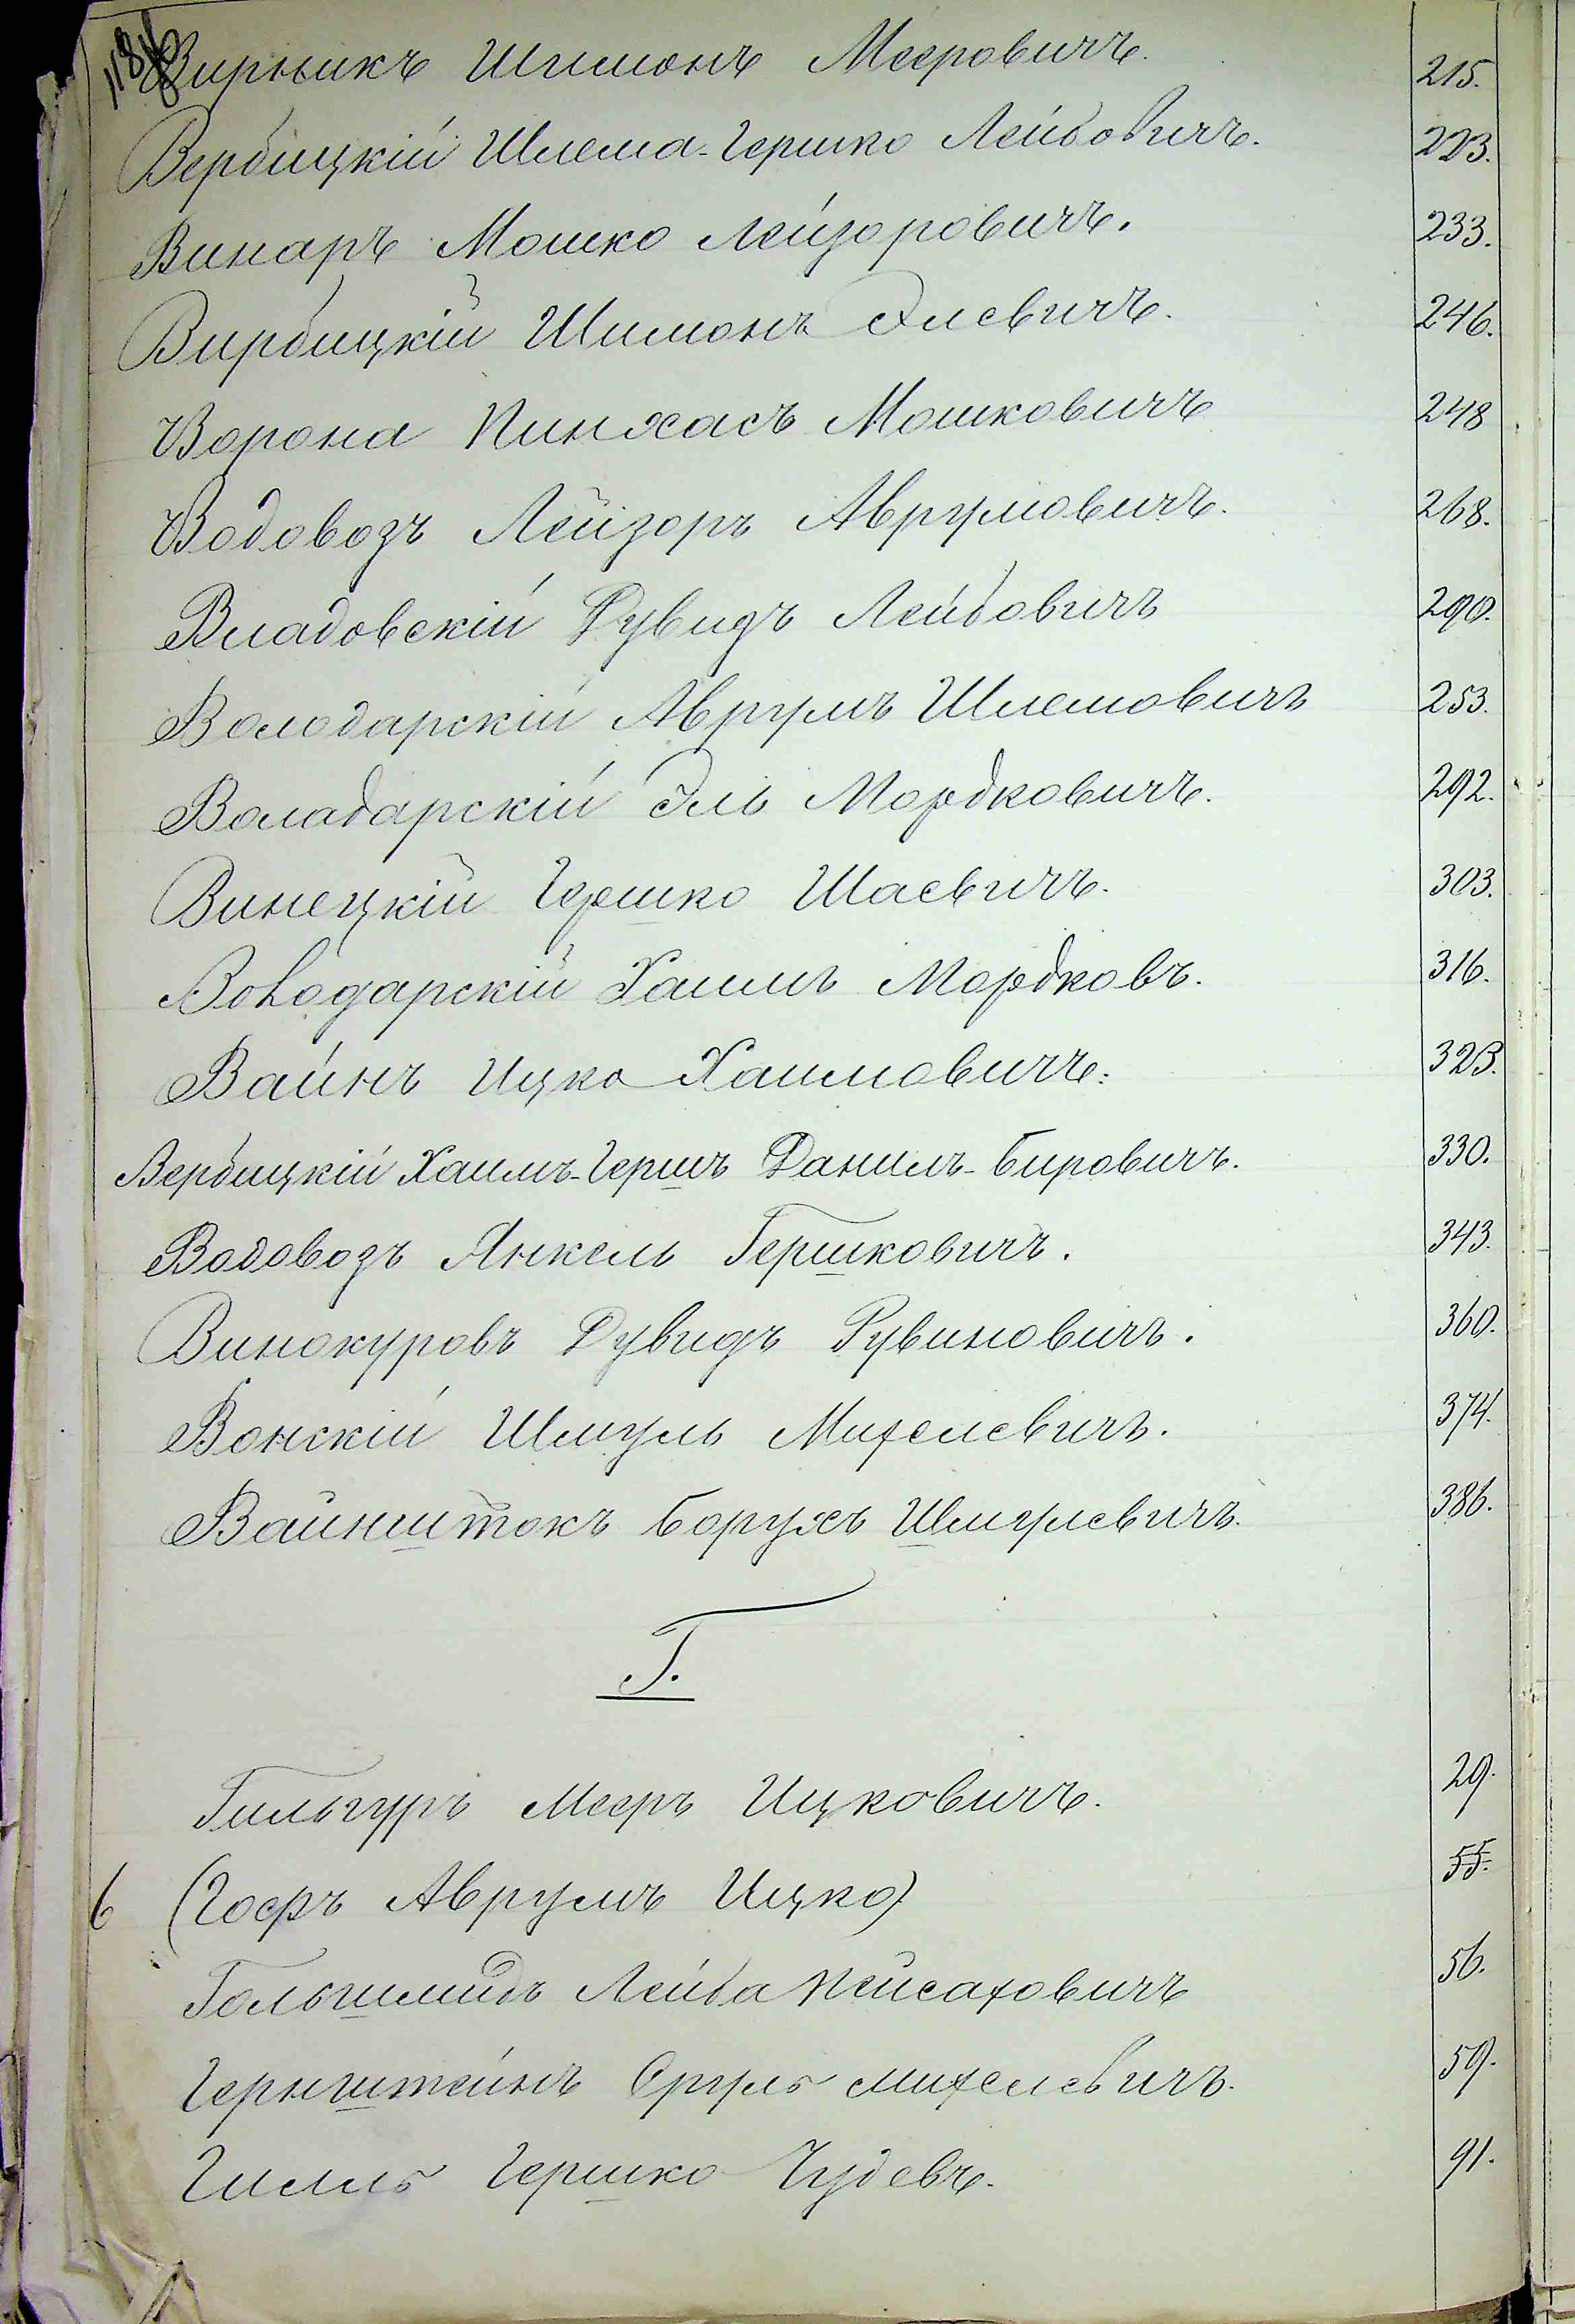 118
Вирникъ Шимонъ Мееровичъ. 215.
Вербицкій Шлема-Гершко Лейбовичъ. 223.
Винаръ Мошко Лейзоровичъ. 233.
Вирбицкій Шимонъ Элевичъ. 246.
Ворона Пинхасъ Мошковичъ 248
Водовозъ Лейзоръ Аврумовичъ. 268.
Владовскій Дувидъ Лейбовичъ 290.
Володарскій Аврумъ Шлемовичъ 253.
Воладарскій Эль Мордковичъ. 292.
Винецкій Гершко Шаевичъ. 303.
Володарскій Хаимъ Мордковъ. 316.
Вайнъ Ицко Хаимовичъ. 323.
Вербицкій Хаимъ-Гершъ Данилъ-Бировичъ. 330.
Водовозъ Янкель Гершковичъ. 343.
Винокуровъ Дувидъ Рувиновичъ. 360.
Вонскій Шмуль Михелевичъ. 374.
Вайнштокъ Борухъ Шмулевичъ. 386.
Г.
Гильгуръ Мееръ Ицковичъ. 29.
6 (Гоеръ Аврумъ Ицко) 55.
Гольшмидъ Лейба Пейсаховичъ 56.
Гернштейнъ Сруль Михелевичъ. 59.
Гершко 91.